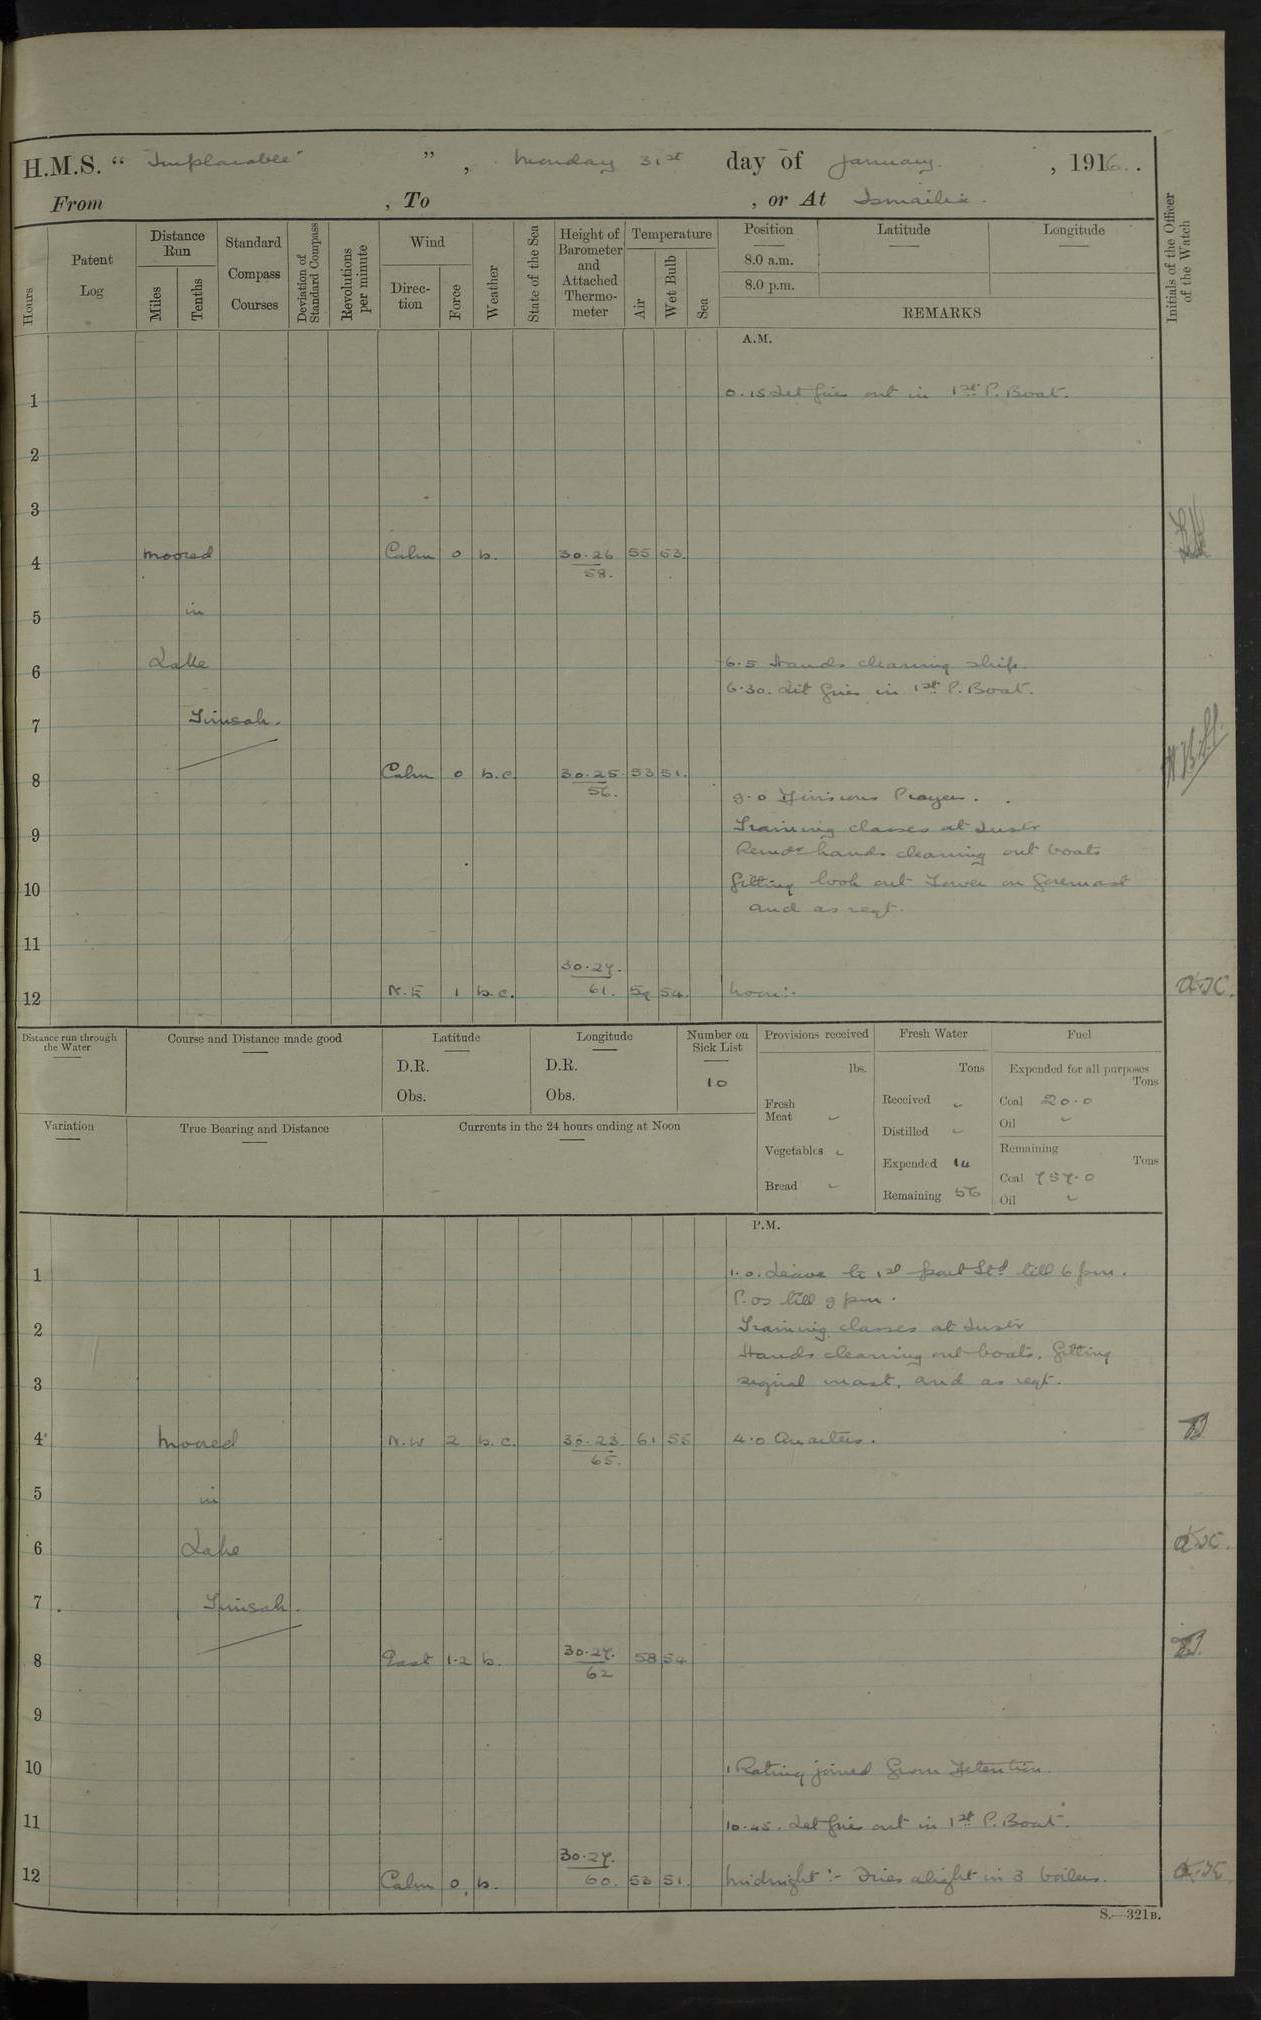 H.M.S. “ Implacable ” , Monday 31st day of January , 1916.
From , To , or At Ismailia.
Hours
Patent Log
Distance Run
Miles
Tenths
Standard Compass Courses
Deviation of Standard Compass
Revolutions per minute
Wind
Direction
Force
Weather
State of the Sea
Height of Barometer and Attached Thermometer
Temperature
Air
Wet Bulb
Sea
Position
8.0 a.m.
8.0 p.m.
Latitude
Longitude
REMARKS
Initials of the Officer of the Watch
A.M.
1 0.15 Let fires out in 1st P. Boat.
2
3
4 Moored Calm 0 b. 30.26 55 53.
58.
5 in
6 Lake 6.5 Hands cleaning ship.
6.30. Lit fires in 1st P. Boat.
7 Timsah.
8 Calm 0 b.c. 30.25. 53 51.
56.
9.0 Divisions Prayers.
9 Training classes at Instr
Remdr hands cleaning out boats
10 fitting look out Tower on foremast
and as reqt.
11
30.27.
12 N.E 1 b.c. 61. 59 54. Noon:- A.J.C.
Distance run through the Water
Course and Distance made good
Latitude
D.R.
Obs.
Longitude
D.R.
Obs.
Number on Sick List
10
Provisions received
lbs.
Fresh Meat
Vegetables
Bread
Fresh Water
Tons
Received
Distilled
Expended 14
Remaining 56
Fuel
Expended for all purposes
Tons
Coal 20.0
Oil
Remaining
Tons
Coal 757.0
Oil
Variation
True Bearing and Distance
Currents in the 24 hours ending at Noon
P.M.
1 1.0. Leave to 1st part Stbd till 6 pm.
P.Os till 9 pm.
2 Training classes at Instr
Hands cleaning out boats, fitting
3 signal mast, and as reqt.
4 Moored N.W 2 b.c. 30.23 61 55 4.0 Quarters.
65.
5 in
6 Lake
7 Timsah.
8 East 1-2 b. 30.27. 58 54
62
9
10 1 Rating joined from Detention.
11 10.45. Let fires out in 1st P. Boat.
30.27.
12 Calm 0 b. 60. 53 51. Midnight :- Fires alight in 3 boilers.
S.—321B.